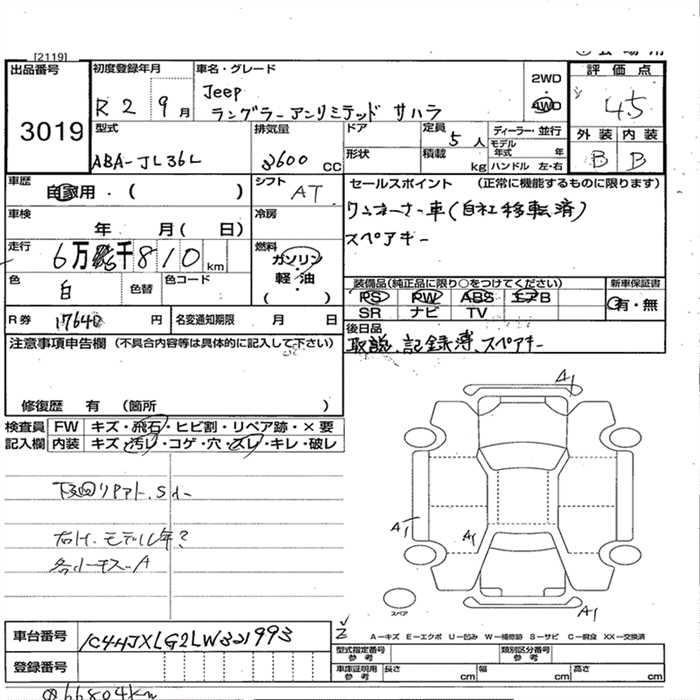 [2119]
出品番号 3019
初度登録年月 R2 9月
車名・グレード
Jeep
ラングラーアンリミテッド サハラ
2WD
4WD
評価点 4.5
外装 内装
B B
型式 ABA-JL36L
排気量 3600 CC
ドア
定員 5人
形状
積載 kg
ディーラー・並行
モデル年式 年
ハンドル 左・右
車歴 自家用・( )
シフト AT
車検 年 月( 日)
冷房
走行 6万 千810 km
燃料 ガソリン
軽・油
( )
色 白
色替
色コード
R券 17640 円
名変通知期限 月 日
セールスポイント (正常に機能するものに限ります)
ワンオーナー車(自社移転済)
スペアキー
装備品(純正品に限り○をつけてください)
PS PW ABS エアB
SR ナビ TV
新車保証書
有・無
後日品
取説、記録簿、スペアキー
注意事項申告欄 (不具合内容等は具体的に記入して下さい)
修復歴 有 (箇所 )
検査員記入欄
FW キズ・飛石・ヒビ割・リペア跡・×要
内装 キズ・汚レ・コゲ・穴・スレ・キレ・破レ
下回リ
モデル年?
各小キズ A
A1
A1
A1
A1
スペア
A-キズ E-エクボ U-凹み W-補修跡 S-サビ C-腐食 XX-交換済
車台番号 1C4HJXLG2LW321993
登録番号
型式指定番号 参考
類別区分番号 参考
車庫証明用 参考
長さ cm
幅 cm
高さ cm
66804km